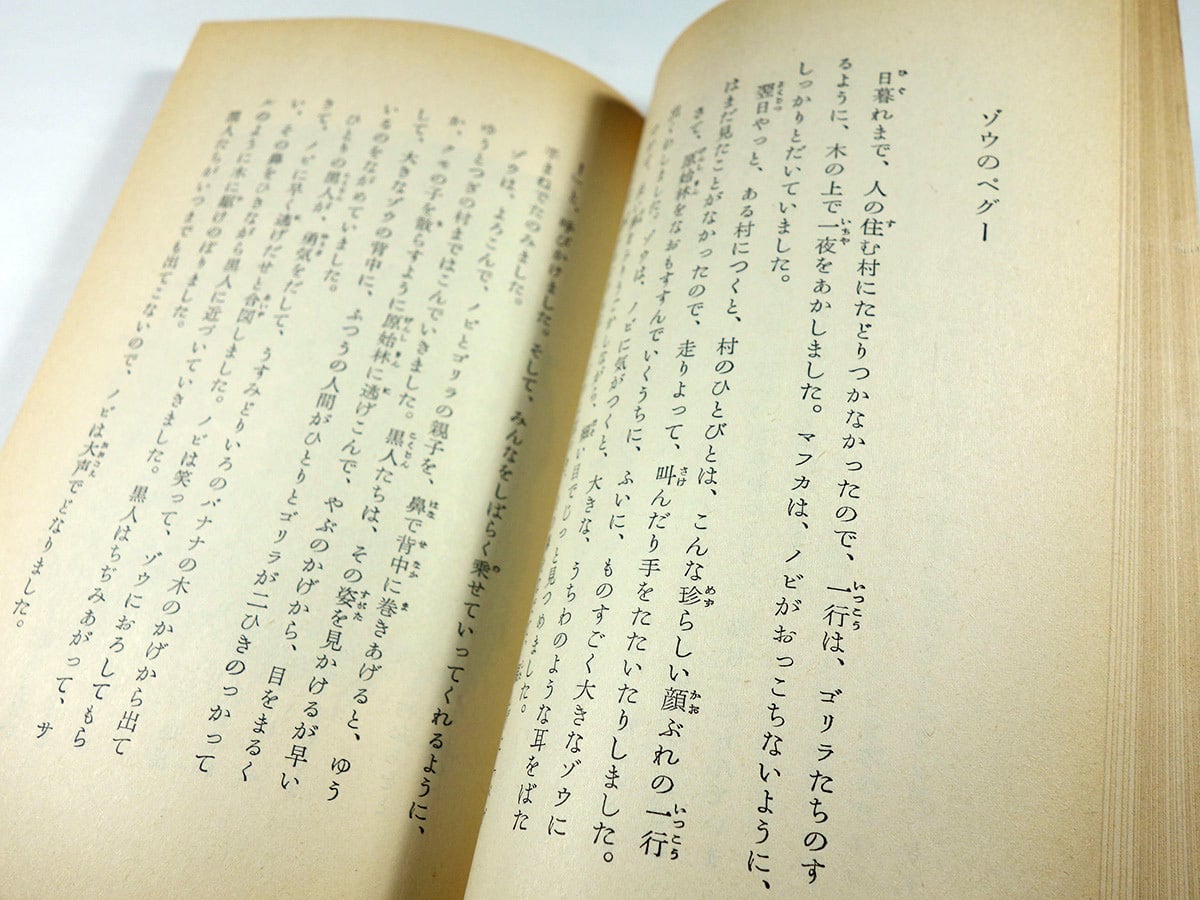 ゾウのペグー
日暮れまで、人の住む村にたどりつかなかったので、一行は、ゴリラたちのす
るように、木の上で一夜をあかしました。マフカは、ノビがおっこちないように、
しっかりとだいていました。
翌日やっと、ある村につくと、村のひとびとは、こんな珍らしい顔ぶれの一行
はまだ見たことがなかったので、走りよって、叫んだり手をたたいたりしました。
さて、原始林をなおもすすんでいくうちに、ふいに、ものすごく大きなゾウに
しました。ゾウは、ノビに気がつくと、大きな、うちわのような耳をばた
細い目でじっと見つめました。
呼びかけました。そして、みんなをしばらく乗せていってくれるように、
手まねでたのみました。
ゾウは、よろこんで、ノビとゴリラの親子を、鼻で背中に巻きあげると、ゆう
ゆうとつぎの村まではこんでいきました。黒人たちは、その姿を見かけるが早い
か、クモの子を散らすように原始林に逃げこんで、やぶのかげから、目をまるく
して、大きなゾウの背中に、ふつうの人間がひとりとゴリラが二ひきのっかって
いるのをながめていました。
ひとりの黒人が、勇気をだして、うすみどりいろのバナナの木のかげから出て
きて、ノビに早く逃げだせと合図しました。ノビは笑って、ゾウにおろしてもら
い、その鼻をひきながら黒人に近づいていきました。黒人はちぢみあがって、サ
ルのように木に駆けのぼりました。
黒人たちがいつまでも出てこないので、ノビは大声でどなりました。